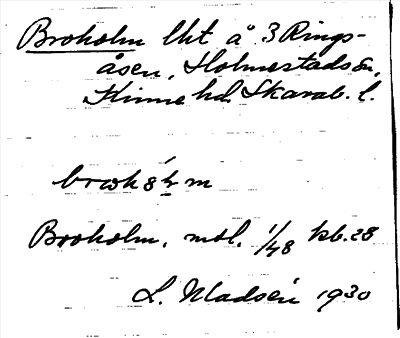 Broholm lht å 3 Rings-
åsen, Holmestads sn,
Kinne hd. Skarab. l.
Broholm. mtl. 1/48 kb. 28
L. Madsén 1930